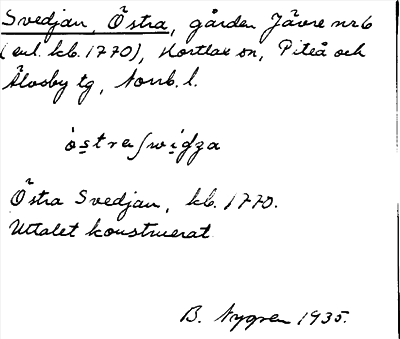 Svedjan, Östra, gården Jävre nr 6
(enl. kb. 1770), Hortlax sn, Piteå och
Älvsby tg, Norrb. l.
Östra Svedjan, kb. 1770.
Uttalet konstruerat
B. Nygren 1935.